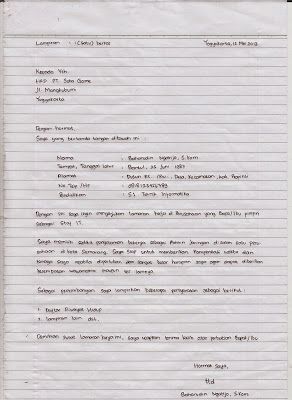 Lampiran : 1 (Satu) berkas Yogyakarta, 12 Mei 2013
Kepada Yth.
HRD PT. Solo Game
Jl. Mangkubumi
Yogyakarta
Dengan hormat,
Saya yang bertanda tangan dibawah ini :
Nama : Baharudin Ngatijo, S.Kom
Tempat, Tanggal lahir : Bantul, 25 Juni 1987
Alamat : Dusun RT./RW., Desa, Kecamatan, Kab, Provinsi
No Tlp /HP :
Pendidikan : S1. Teknik Informatika.
Dengan ini saya ingin mengajukan lamaran kerja di Perusahaan yang Bapak/Ibu pimpin
sebagai Staf IT.
Saya memiliki sedikit pengalaman bekerja sebagai Admin Jaringan di salah satu peru-
sahaan di kota Semarang. Saya siap untuk memberikan kemampuan waktu dan
tenaga saya apabila diperlukan dan sangat besar harapan saya agar dapat diberikan
kesempatan wawancara maupun tes lainnya.
Sebagai pertimbangan saya lampirkan beberapa persyaratan sebagai berikut :
1. Daftar Riwayat Hidup
2. lampiran lain dst.
Demikian surat lamaran kerja ini, saya ucapkan terima kasih atas perhatian Bapak/Ibu
Hormat Saya,
ttd
Baharudin Ngatijo, S.Kom